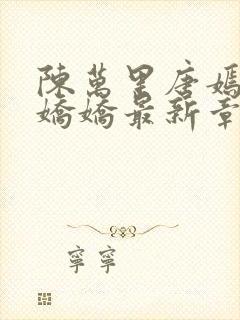 陳萬里唐嫣
嬌嬌最新章
寧寧